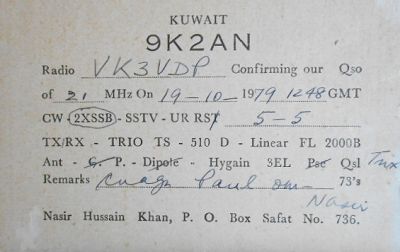 KUWAIT
9K2AN
Radio VK3VDP Confirming our Qso
of 21 MHz On 19-10-1979 1248 GMT
CW - 2XSSB - SSTV - UR RST 5-5
TX/RX - TRIO TS - 510 D - Linear FL 2000B
Ant - G. P. - Dipole - Hygain 3EL Pse Qsl Tnx
Remarks Paul om 73's
Nasir
Nasir Hussain Khan, P. O. Box Safat No. 736.